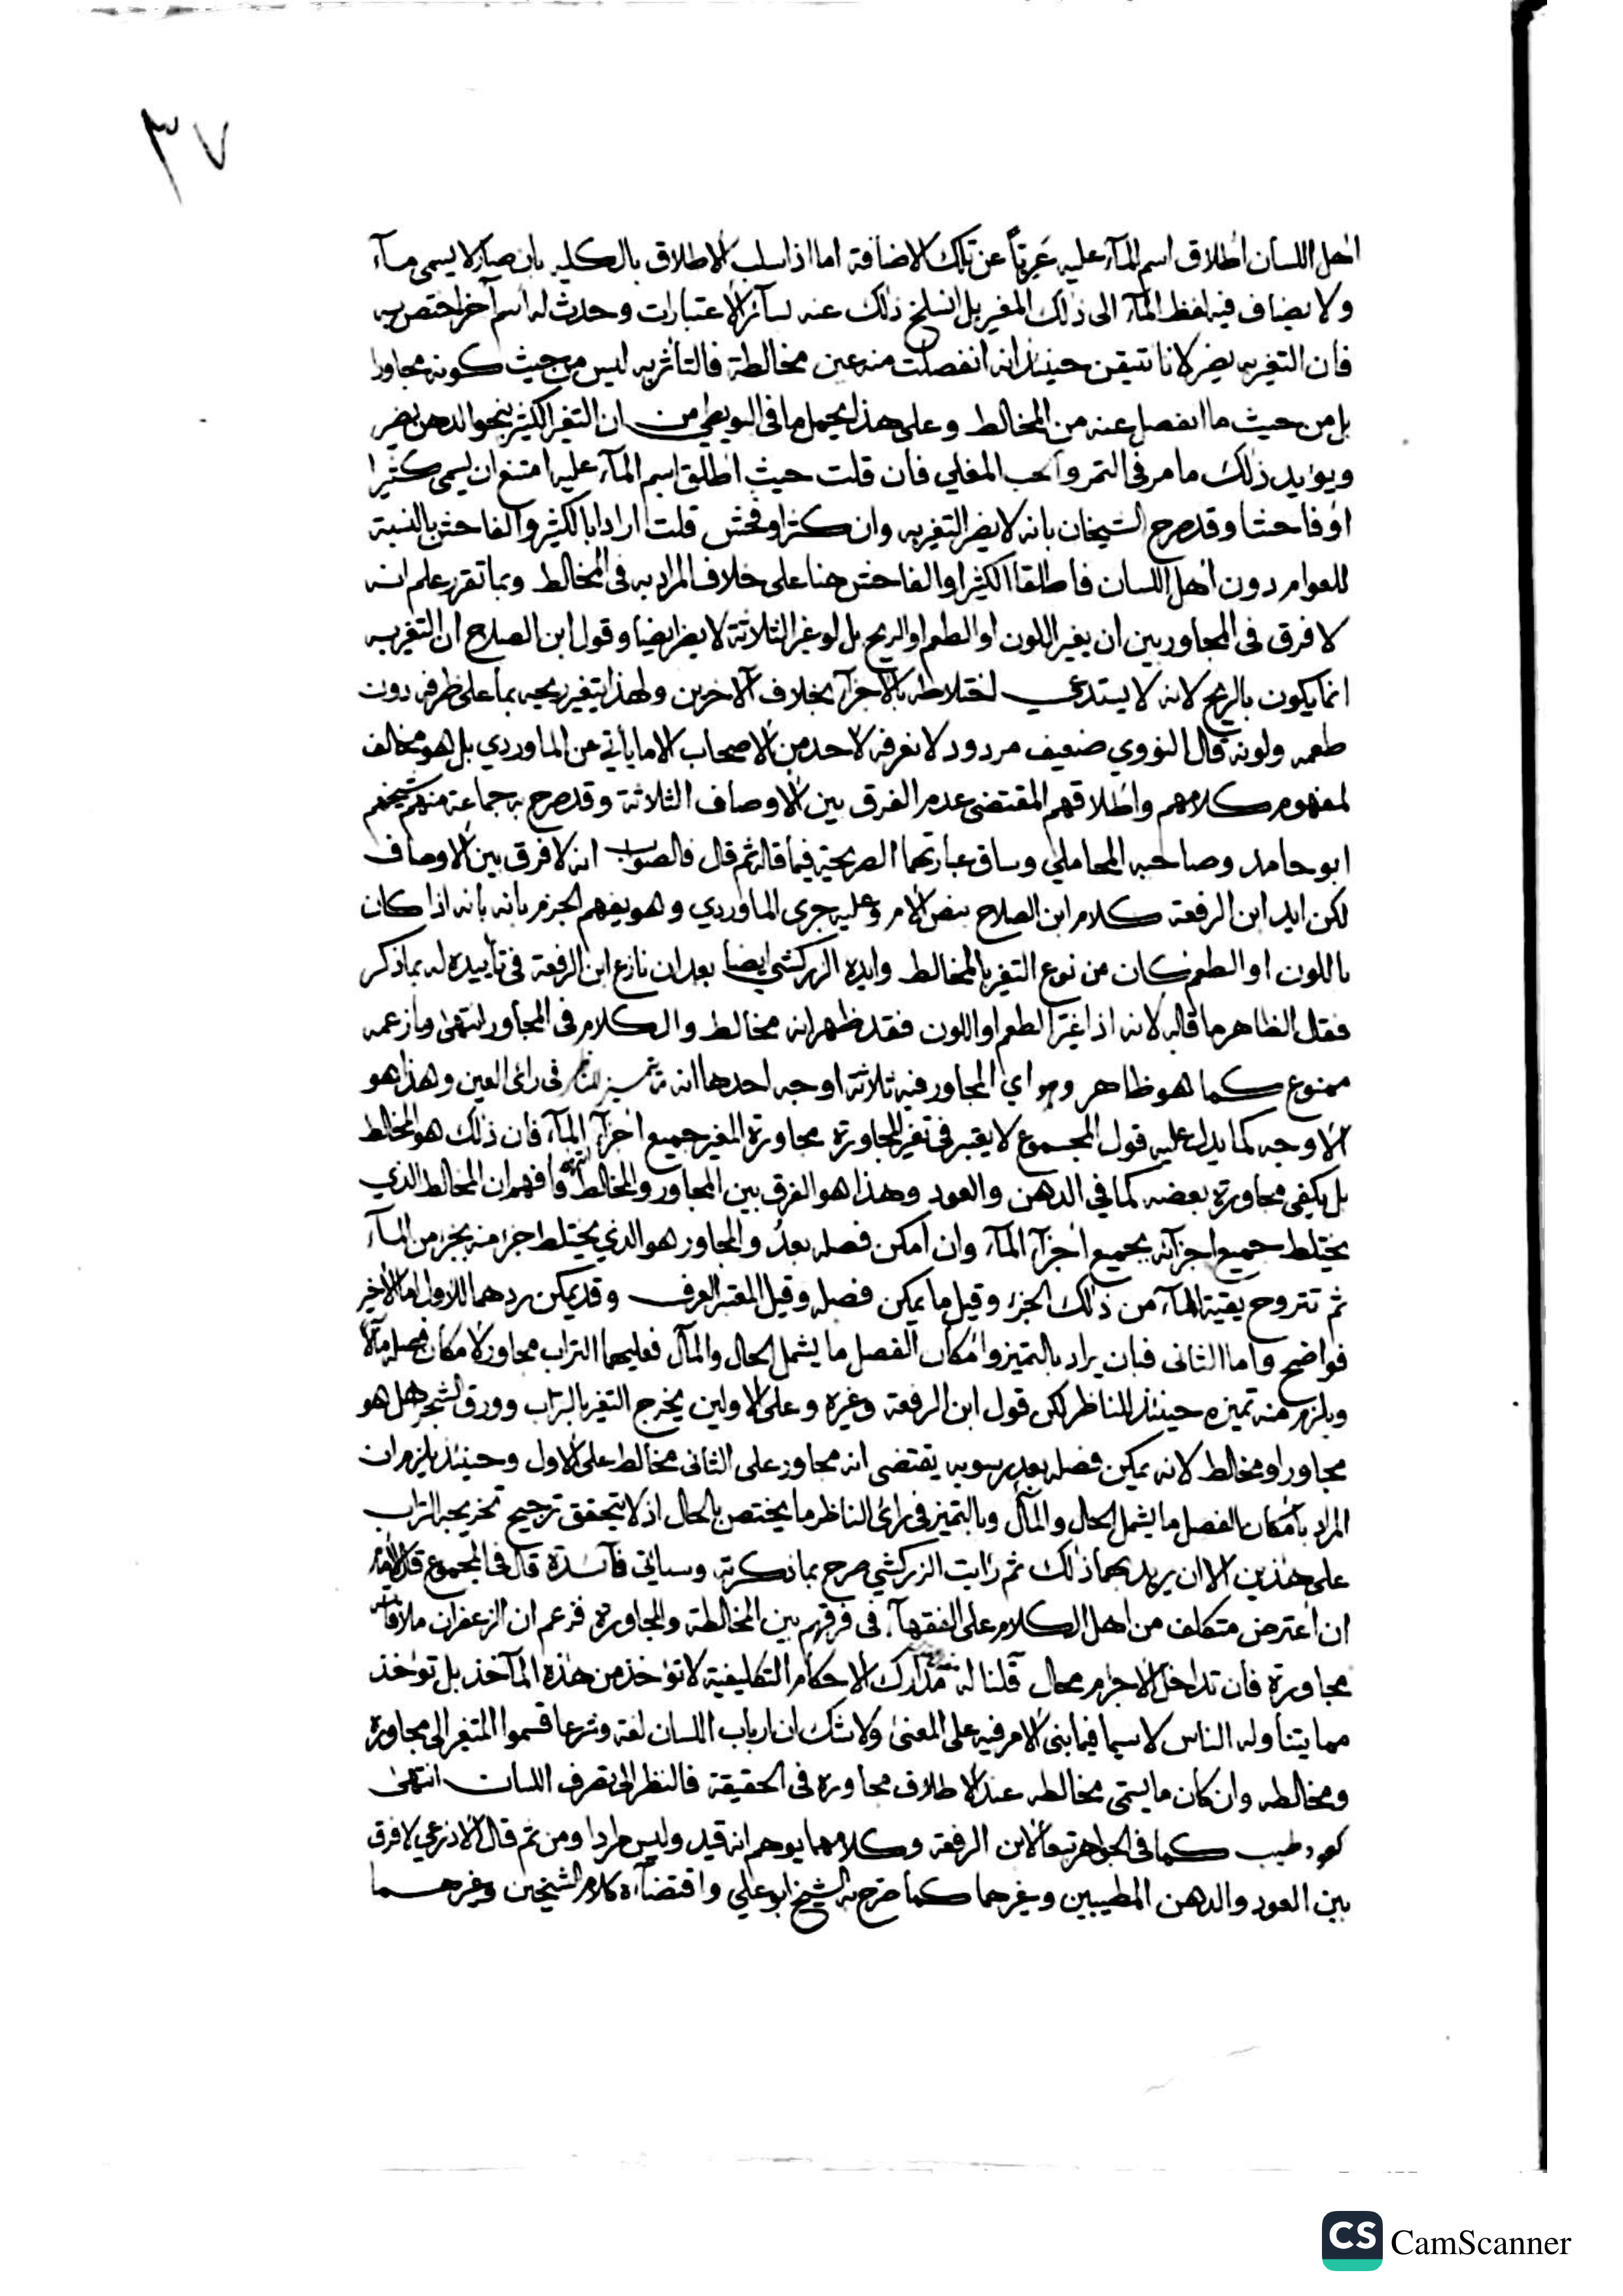 ٣٧
اهل اللسان اطلاق اسم المآء عليه عَرِيّاً عن تلك الاضافة اما اذا سلب الاطلاق بالكليه بان صار لا يسمى مآء
ولا يضاف فيه لفظ المآء الى ذلك المغير بل انسلخ ذلك عنه بسآئر الاعتبارات وحدث له اسم آخر اختص به
فان التغير به يضر لانا نتيقن حينئذ انه انفصلت منه عين مخالطة فالتأثر به ليس من حيث كونه مجاورا
بل من حيث ما انفصل عنه من المخالط وعلى هذا يحمل ما في البويطي من ان التغير الكثير بنحو الدهن يضر
ويؤيد ذلك ما مر في التمر والحب المغلي فان قلت حيث اطلق اسم المآء عليه امتنع ان يسمى كثيرا
او فاحشا وقد صرح الشيخان بانه لا يضر التغير به وان كثر او فحش قلت ارادا بالكثير والفاحش بالنسبة
للعوام دون اهل اللسان فاطلقا الكثير او الفاحش هنا على خلاف المراد به في المخالط وبما تقرر علم انه
لا فرق في المجاور بين ان يغير اللون او الطعم او الريح بل لو غير الثلاثة لا يضر ايضا وقول ابن الصلاح ان التغير به
انما يكون بالريح لانه لا يستدعي اختلاطه بالاجزآء بخلاف الآخرين ولهذا يتغير ريحه بما على طرفه دون
طعمه ولونه قال النووي ضعيف مردود لا نعرفه لاحد من الاصحاب الا ما ياتي عن الماوردي بل هو مخالف
لمفهوم كلامهم واطلاقهم المقتضى عدم الفرق بين الاوصاف الثلاثة وقد صرح به جماعة منهم شيخهم
ابو حامد وصاحبه المحاملي وساق عبارتهما الصريحة فيما قاله ثم قال فالصواب انه لا فرق بين الاوصاف
لكن ايد ابن الرفعة كلام ابن الصلاح بنص الام وعليه جرى الماوردي وهو يفهم الجزم بانه بانه اذا كان
باللون او الطعم كان من نوع التغير بالمخالط وايده الزركشي ايضا بعد ان نازع ابن الرفعة في تاييده له بما ذكر
فقل الظاهر ما قاله لانه اذا غيّر الطعم او اللون فقد ظهر انه مخالط والكلام في المجاور انتهى وما زعمه
ممنوع كما هو ظاهر وهو اي المجاور فيه ثلاثة اوجه احدها انه ما تميز للناظر في راى العين وهذا هو
الاوجه كما يدل عليه قول المجموع لا يعتبر في تغير المجاورة مجاورة المغير جميع اجزآء المآء فان ذلك هو المخالط
بل يكفي مجاورة بعضه كما في الدهن والعود وهذا هو الفرق بين المجاور والمخالط انتهى وافهم ان المخالط الذي
يختلط جميع اجزآئه بجميع اجزآء المآء وان امكن فصله بعدُ والمجاور هو الذي يختلط جزء منه بجزء من المآء
ثم تتروح بقية المآء من ذلك الجزء وقيل ما يمكن فصله وقيل المعتبر العرف وقد يمكن ردهما للاول اما الاخير
فواضح واما الثانى فبان يراد بالتميز وامكان الفصل ما يشمل الحال والمآل فعليهما التراب مجاور لامكان فصله مآلاً
ويلزم منه تميزه حينئذ للناظر لكن قول ابن الرفعة وغيره وعلى الاولين يخرج التغير بالتراب وورق الشجر هل هو
مجاور او مخالط لانه يمكن فصله بعد رسوبه يقتضى انه مجاور على الثانى مخالط على الاول وحينئذ يلزم ان
المراد بامكان الفصل ما يشمل الحال والمآل وبالتميز في راى الناظر ما يختص بالحال اذ لا يتحقق ترجيح تخريجه التراب
على هذين الا ان يريد بهما ذلك ثم رايت الزركشي صرح بما ذكرته وسياتى فآئدة قال في المجموع قال الامام
ان اعترض متكلف من اهل الكلام على الفقهآء في فرقهم بين المخالطة والمجاورة فزعم ان الزعفران ملاقاته
مجاورة فان تداخل الاجرام محال قلنا له مدارك الاحكام التكليفية لا تؤخذ من هذه المآخذ بل تؤخذ
مما يتناوله الناس لا سيما فيما بنى الامر فيه على المعنى ولا شك ان ارباب اللسان لغة وشرعا قسموا المتغير الى مجاورة
ومخالطه وان كان ما يسمى مخالطه عند الاطلاق مجاورة في الحقيقة فالنظر الى تصرف اللسان انتهى
كعود طيب كما في الجواهر تبعا لابن الرفعة وكلامهما يوهم انه قيد وليس مرادا ومن ثم قال الاذرعي لا فرق
بين العود والدهن المطيبين وغيرهما كما صرح به الشيخ ابو علي واقتضآه كلام الشيخين وغيرهما
CS CamScanner